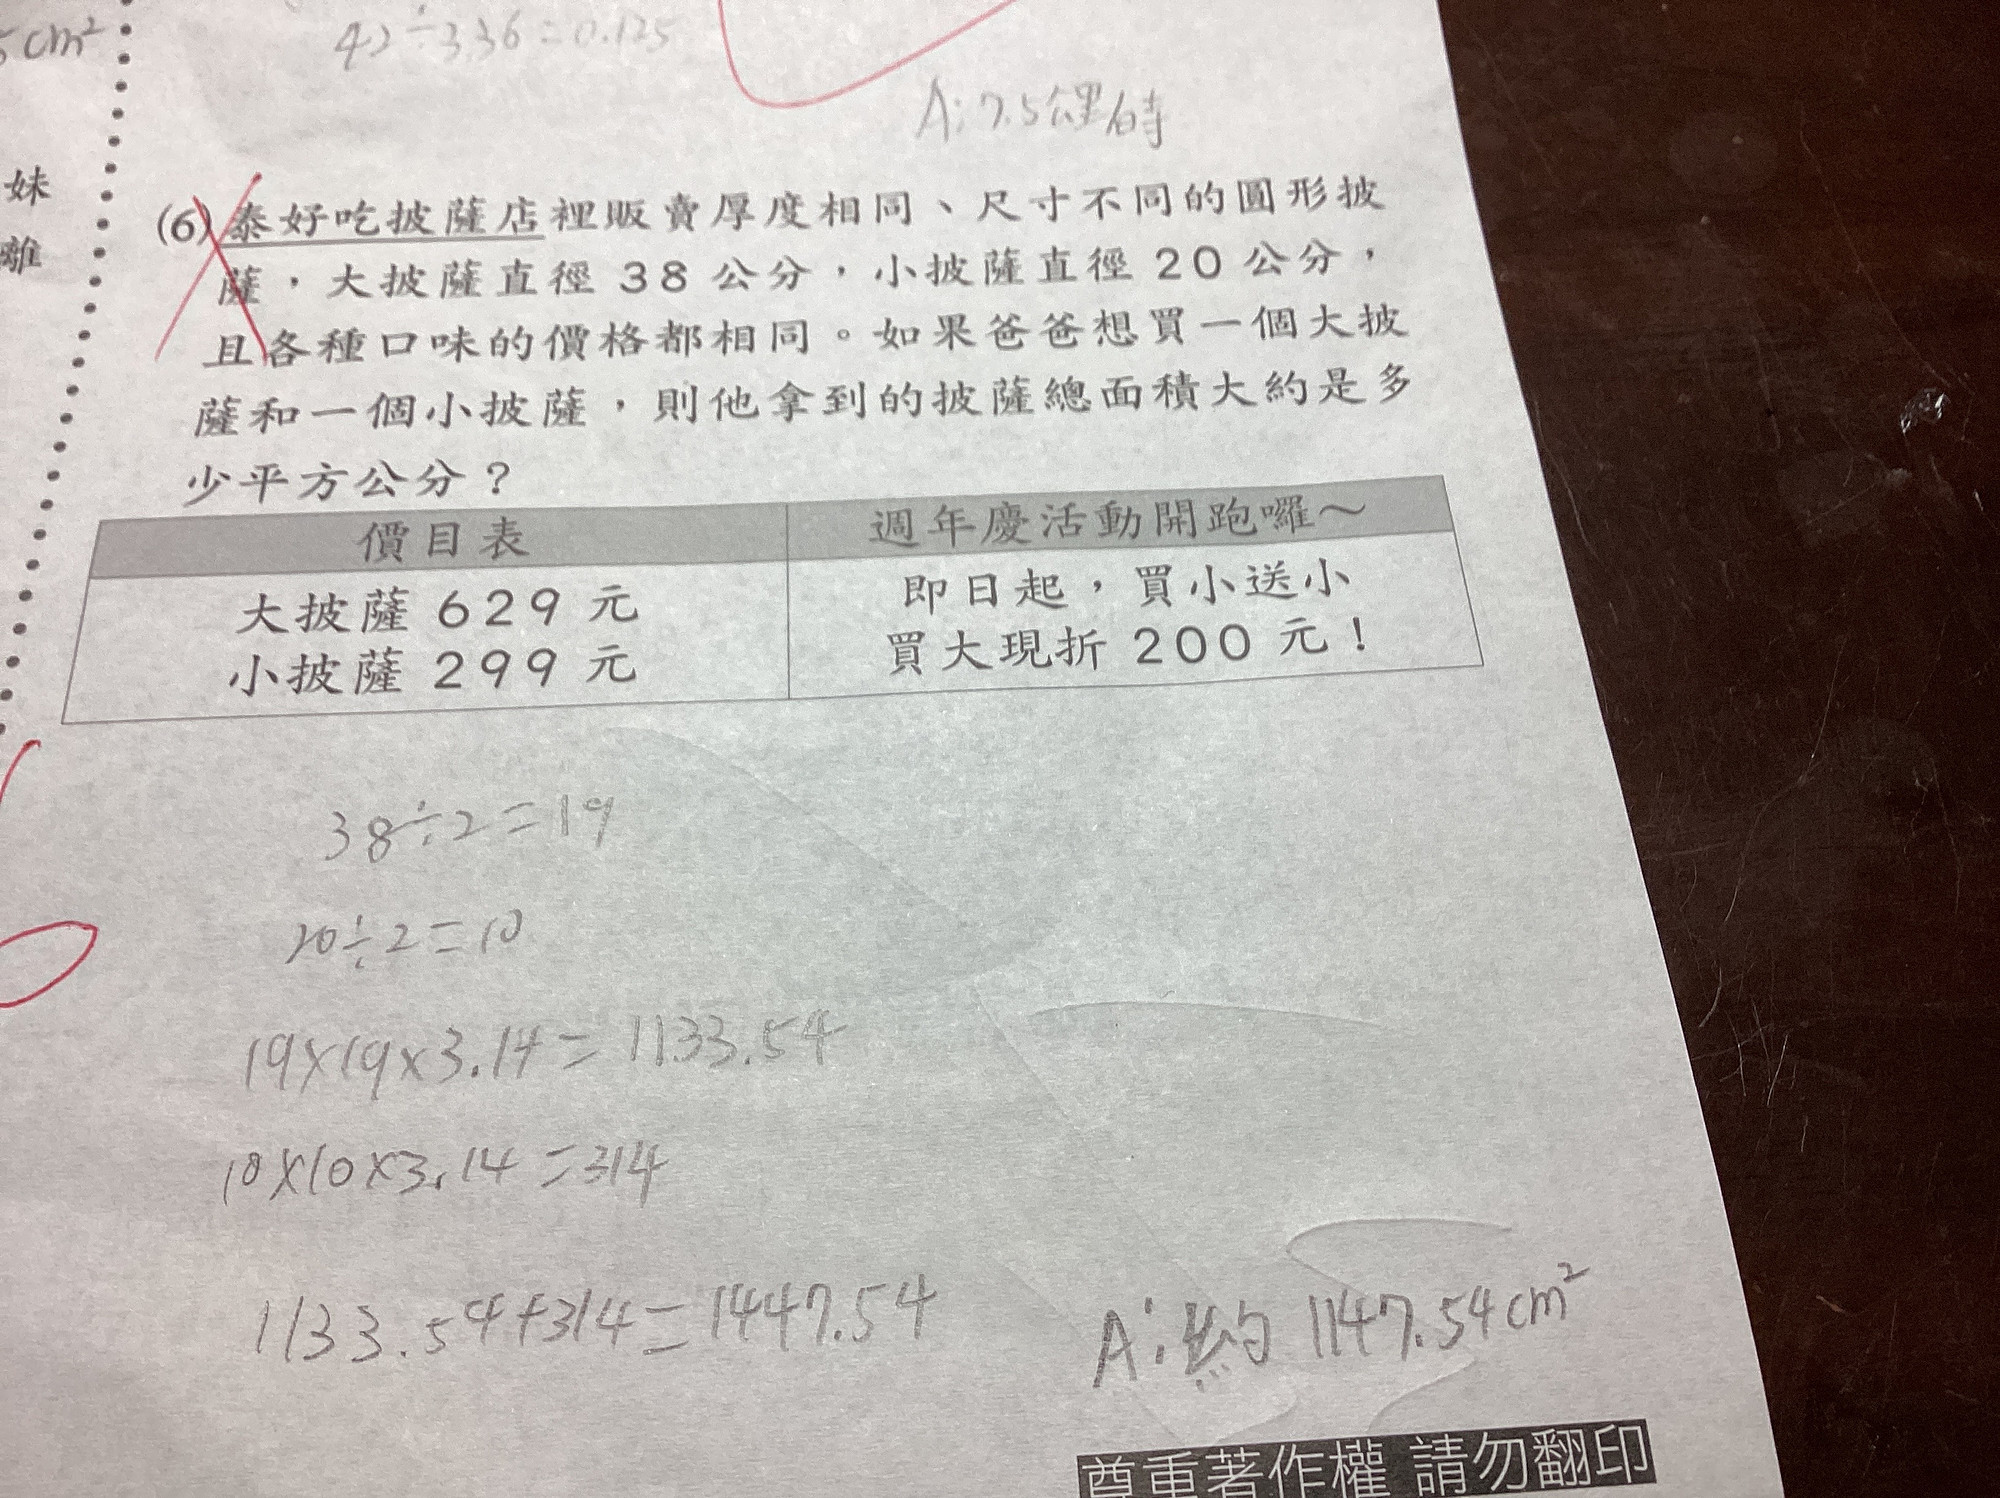 5cm²
42÷336=0.125
A:7.5公里/時
妹
離
(6)泰好吃披薩店裡販賣厚度相同、尺寸不同的圓形披
薩，大披薩直徑 38 公分，小披薩直徑 20 公分，
且各種口味的價格都相同。如果爸爸想買一個大披
薩和一個小披薩，則他拿到的披薩總面積大約是多
少平方公分？
價目表
大披薩 629 元
小披薩 299 元
週年慶活動開跑囉～
即日起，買小送小
買大現折 200 元！
38÷2=19
20÷2=10
19×19×3.14=1133.54
10×10×3.14=314
1133.54+314=1447.54
A:約 1147.54cm²
尊重著作權 請勿翻印